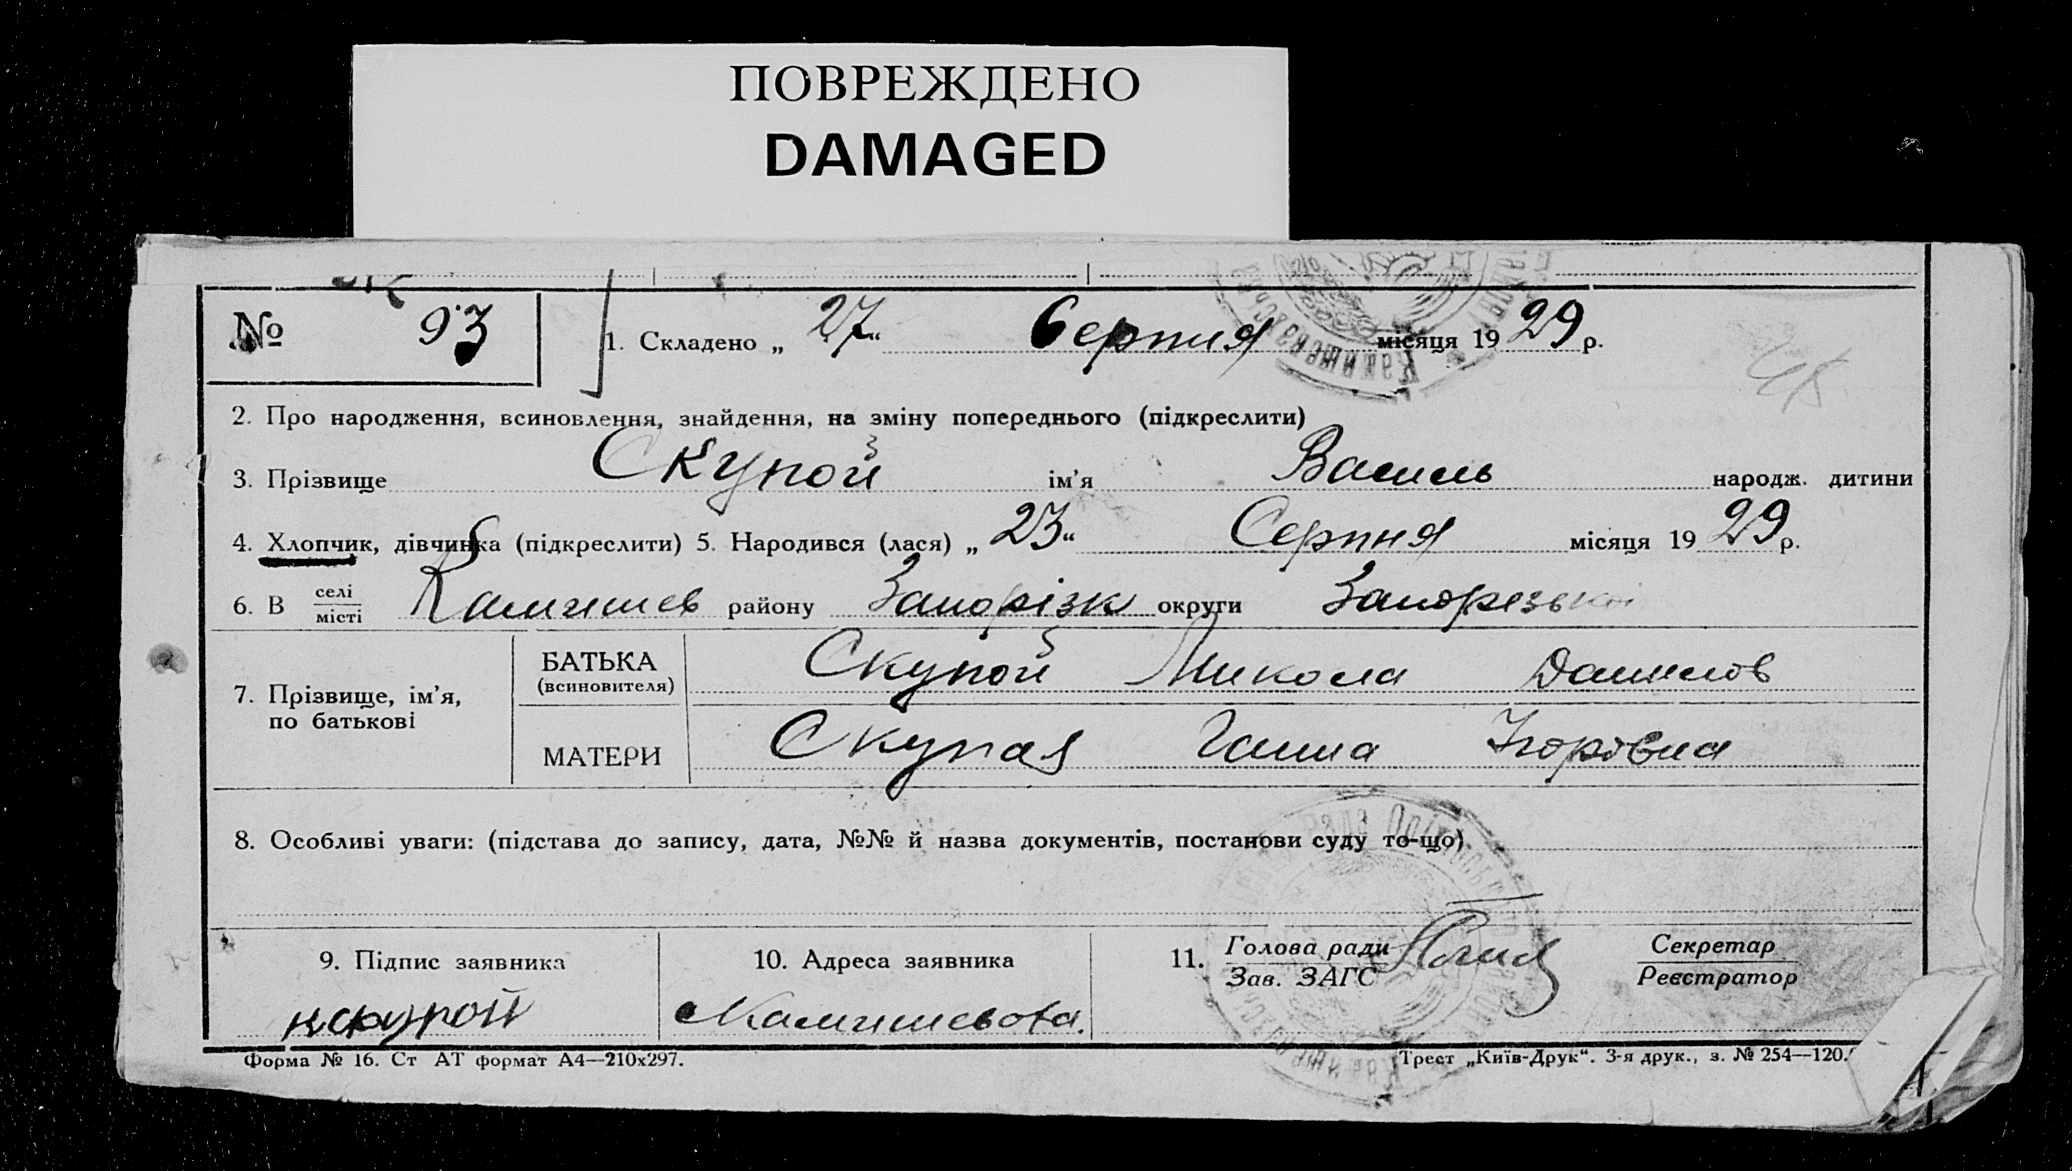 ПОВРЕЖДЕНО
DAMAGED
№ 93 1. Складено „ 27 “ Серпня місяця 1929 р.
2. Про народження, всиновлення, знайдення, на зміну попереднього (підкреслити)
3. Прізвище Скупой ім'я Василь народж. дитини
4. Хлопчик, дівчинка (підкреслити) 5. Народився (лася) „ 23 “ Серпня місяця 1929 р.
6. В селі
місті Камишев району Запоріжк округи Запорізької
7. Прізвище, ім'я,
по батькові
БАТЬКА
(всиновителя)
Скупой Микола Данилов
МАТЕРИ
Скупая Ганна Ігорівна
8. Особливі уваги: (підстава до запису, дата, №№ й назва документів, постанови суду то-що)
9. Підпис заявника 10. Адреса заявника 11. Голова ради Секретар
Зав. ЗАГС Реєстратор
нскупой Камишеваха.
Форма № 16. Ст АТ формат А4—210х297. Трест „Київ-Друк“. 3-я друк., з. № 254—120.